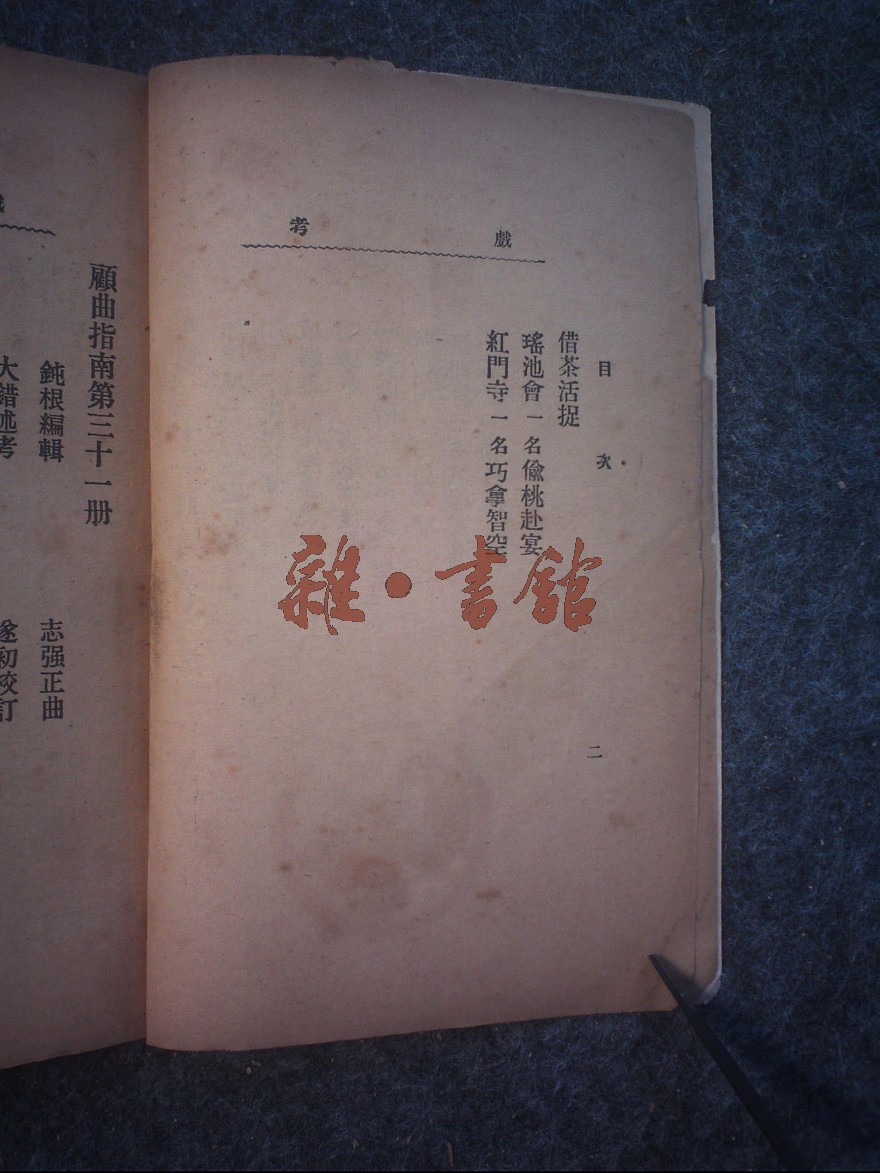 戲考
目次
二
借茶活捉
瑤池會一名偸桃赴宴
紅門寺一名巧拿智空
雜·書館
顧曲指南第三十一册
鈍根編輯
志强正曲
大錯述考
遂初校訂